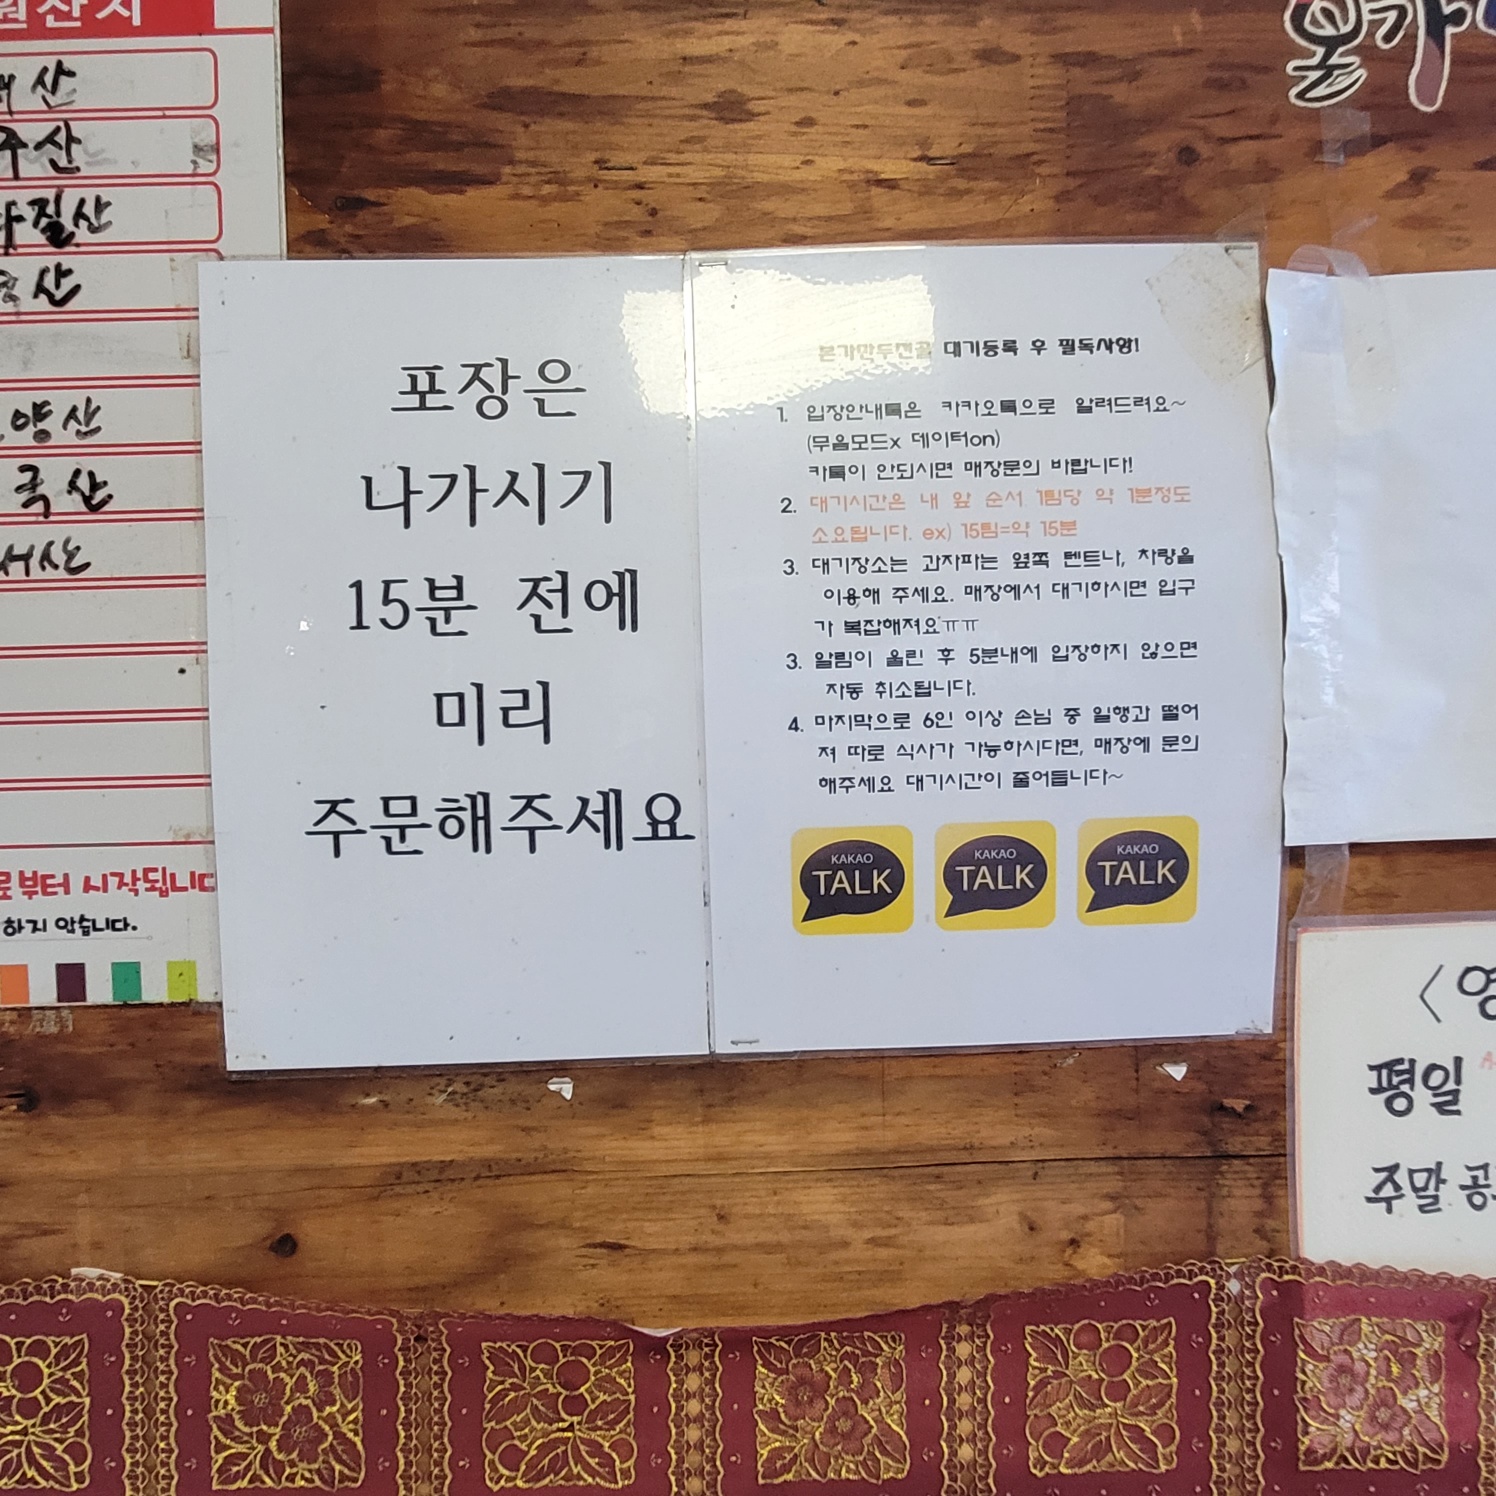 원산지
산
주산
질산
산
양산
국산
부터 시작됩니다
하지 않습니다.
포장은
나가시기
15분 전에
미리
주문해주세요
본가만두전골 대기등록 후 필독사항!
1. 입장안내톡은 카카오톡으로 알려드려요~
(무음모드x 데이터on)
카톡이 안되시면 매장문의 바랍니다!
2. 대기시간은 내 앞 순서 1팀당 약 1분정도
소요됩니다. ex) 15팀=약 15분
3. 대기장소는 과자파는 옆쪽 텐트나, 차량을
이용해 주세요. 매장에서 대기하시면 입구
가 복잡해져요ㅠㅠ
3. 알림이 울린 후 5분내에 입장하지 않으면
자동 취소됩니다.
4. 마지막으로 6인 이상 손님 중 일행과 떨어
져 따로 식사가 가능하시다면, 매장에 문의
해주세요 대기시간이 줄어듭니다~
KAKAO TALK KAKAO TALK KAKAO TALK
본가
<영
평일
주말 공